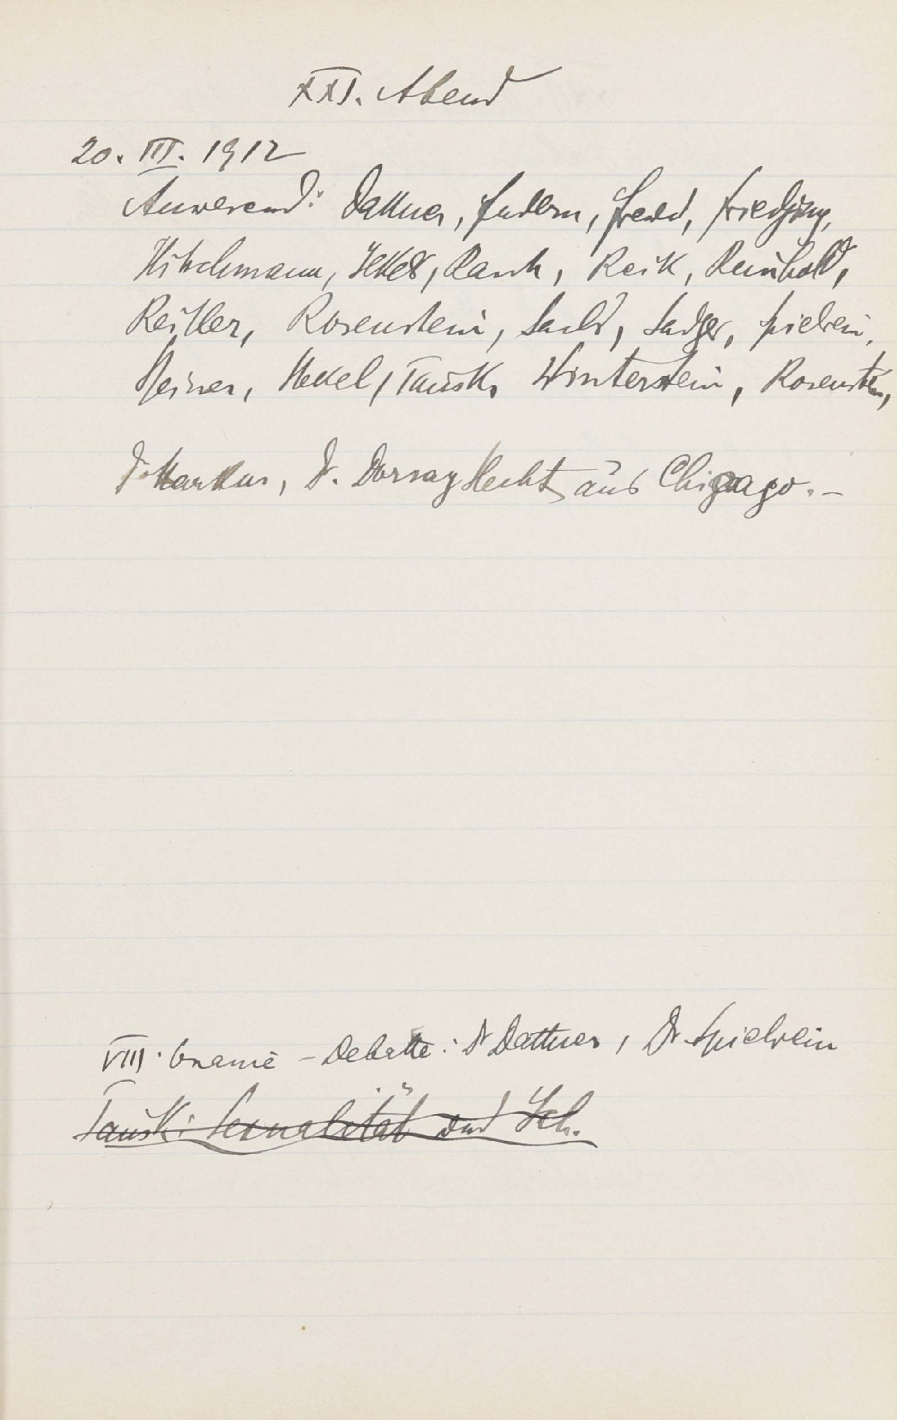 XXI. Abend
20. III. 1912
Anwesend: Dattner, Federn, Freud, Friedjung,
Hitschmann, Jekels, Rank, Reik, Reinhold,
Reitler, Rosenstein, Sachs, Sadger, Spielrein,
Steiner, Stekel, Tausk, Winterstein, Rosenstein,
Dr. Markus, Dr. Dorsay Hecht aus Chicago. –
VIII. Onanie – Debatte: Dr Dattner, Dr. Spielrein
Tausk: Sexualität und Ich.